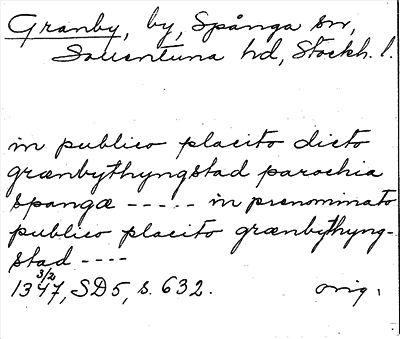 Granby, by, Spånga sn,
Sollentuna hd, Stockh. l.
in publico placito dicto
grænbythyngstad parochia
spangæ ----- in prenominato
publico placito grænbythyng-
stad ----
3/2
1347, SD5, s. 632. orig.